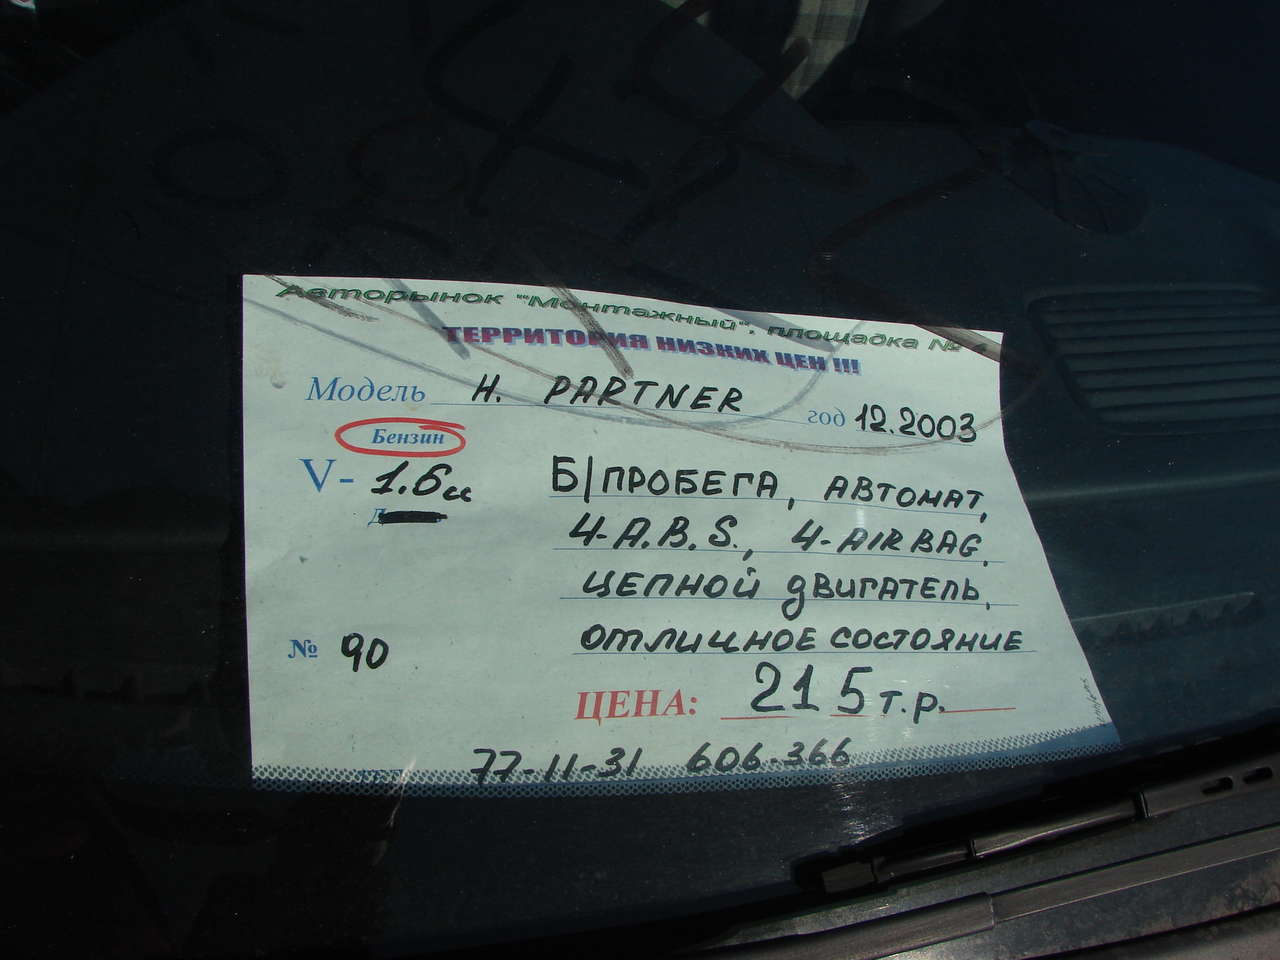 Авторынок "Монтажный", площадка №
ТЕРРИТОРИЯ НИЗКИХ ЦЕН !!!
Модель H. PARTNER год 12.2003
Бензин
V- 1.6и
Б/ПРОБЕГА, АВТОМАТ,
4-A.B.S., 4-AIRBAG,
ЦЕПНОЙ ДВИГАТЕЛЬ,
ОТЛИЧНОЕ СОСТОЯНИЕ
№ 90
ЦЕНА: 215 т.р.
77-11-31 606-366